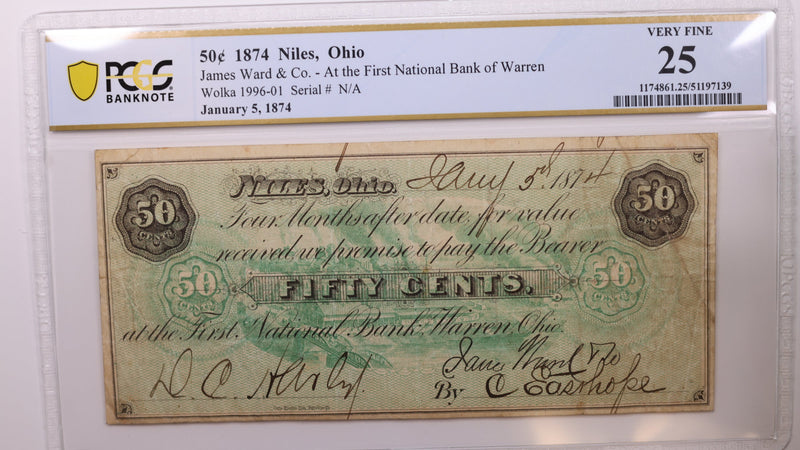 PCGS
BANKNOTE
50¢ 1874 Niles, Ohio
James Ward & Co. - At the First National Bank of Warren
Wolka 1996-01 Serial # N/A
January 5, 1874
VERY FINE
25
1174861.25/51197139
NILES, Ohio, Jany 5th 1874
50 CENTS 50 CENTS
Four Months after date, for value
received, we promise to pay the Bearer
50 FIFTY CENTS. 50
at the First National Bank, Warren Ohio.
James Ward & Co
D. C.
By C Easthope